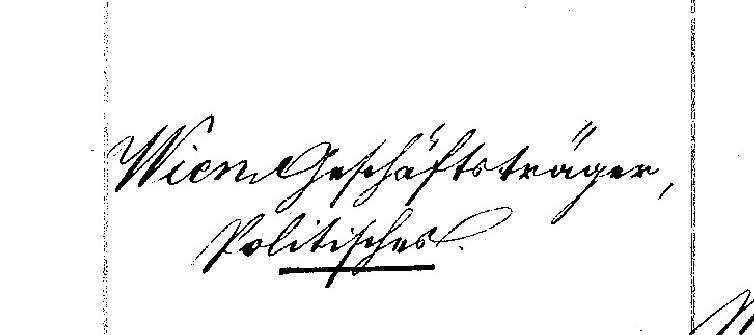 Wien Geschäftsträger,
Politisches.